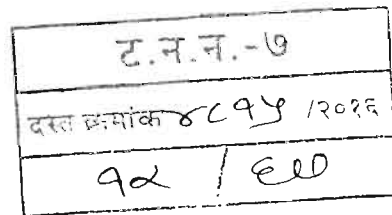 ट.न.न.-७
दस्त क्रमांक ४८१५ /२०१६
१४ / ६७